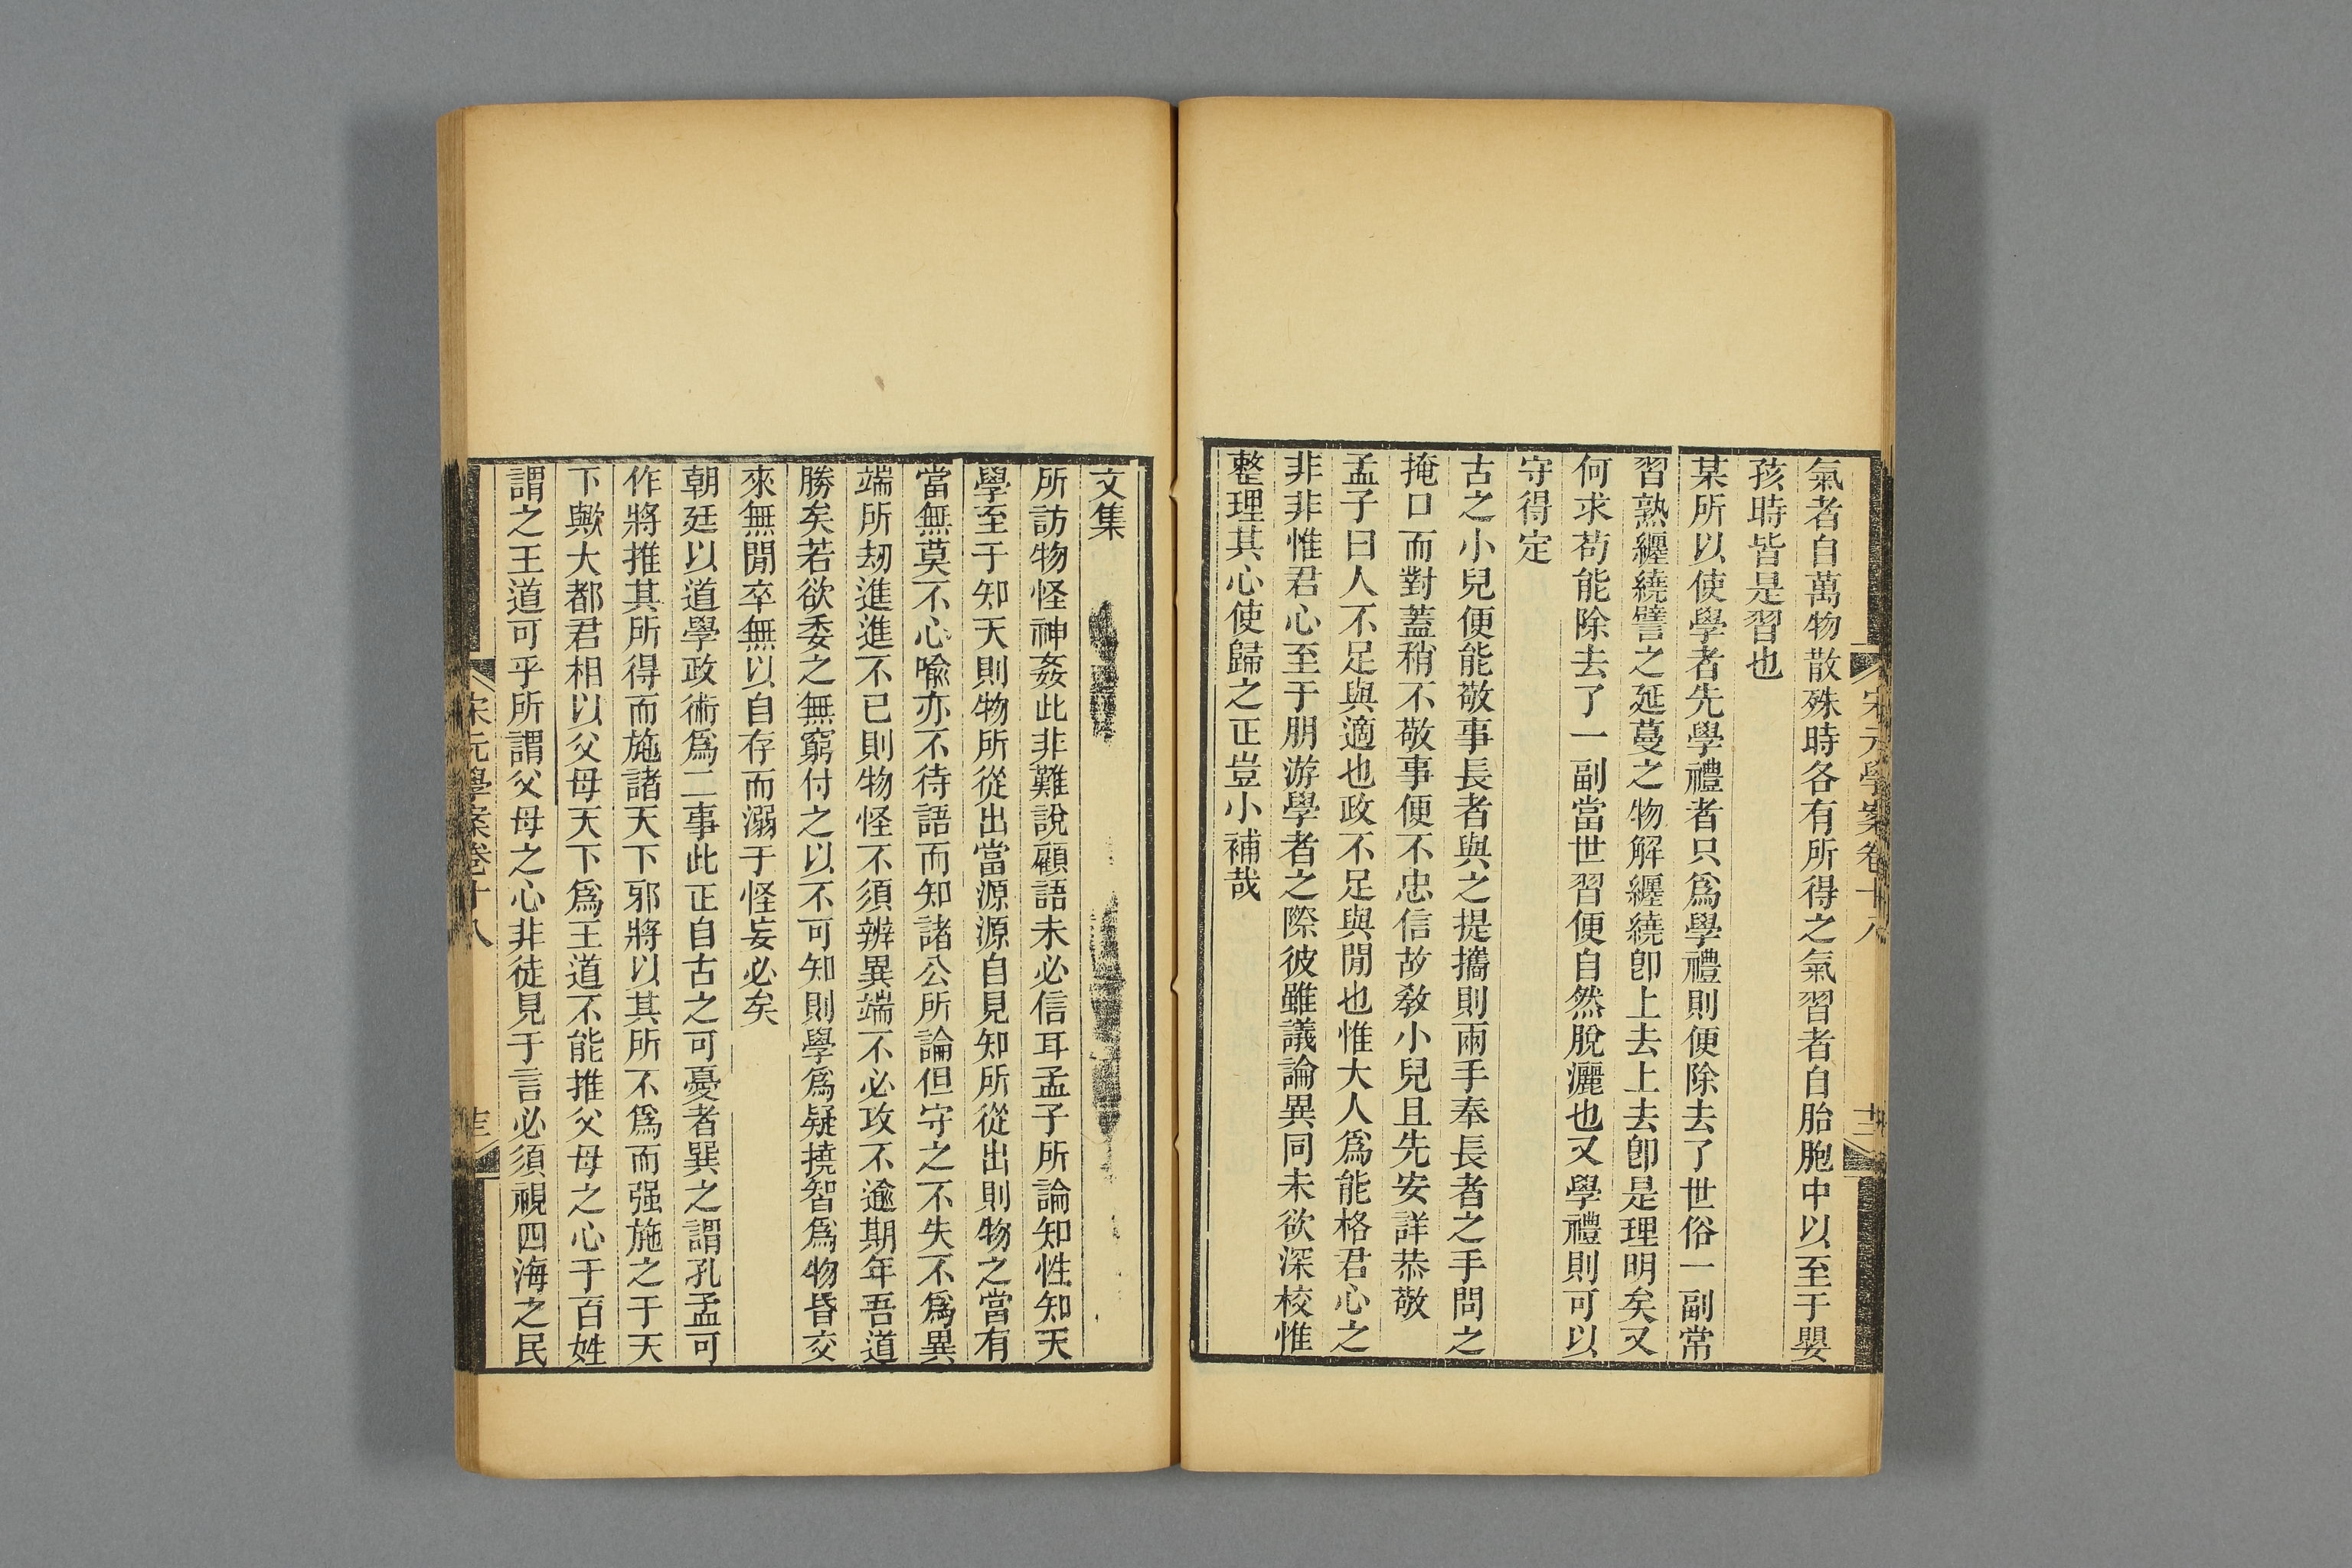 宋元學案卷十八
氣者自萬物散殊時各有所得之氣習者自胎胞中以至于嬰
孩時皆是習也
某所以使學者先學禮者只爲學禮則便除去了世俗一副常
習熟纏繞譬之延蔓之物解纏繞卽上去上去卽是理明矣又
何求苟能除去了一副當世習便自然脫灑也又學禮則可以
守得定
古之小兒便能敬事長者與之提攜則兩手奉長者之手問之
掩口而對蓋稍不敬事便不忠信故敎小兒且先安詳恭敬
孟子曰人不足與適也政不足與閒也惟大人爲能格君心之
非非惟君心至于朋游學者之際彼雖議論異同未欲深校惟
整理其心使歸之正豈小補哉
文集
所訪物怪神姦此非難說顧語未必信耳孟子所論知性知天
學至于知天則物所從出當源源自見知所從出則物之當有
當無莫不心喻亦不待語而知諸公所論但守之不失不爲異
端所刼進進不已則物怪不須辨異端不必攻不逾期年吾道
勝矣若欲委之無窮付之以不可知則學爲疑撓智爲物昏交
來無閒卒無以自存而溺于怪妄必矣
朝廷以道學政術爲二事此正自古之可憂者巽之謂孔孟可
作將推其所得而施諸天下邪將以其所不爲而强施之于天
下歟大都君相以父母天下爲王道不能推父母之心于百姓
謂之王道可乎所謂父母之心非徒見于言必須視四海之民
宋元學案卷十八